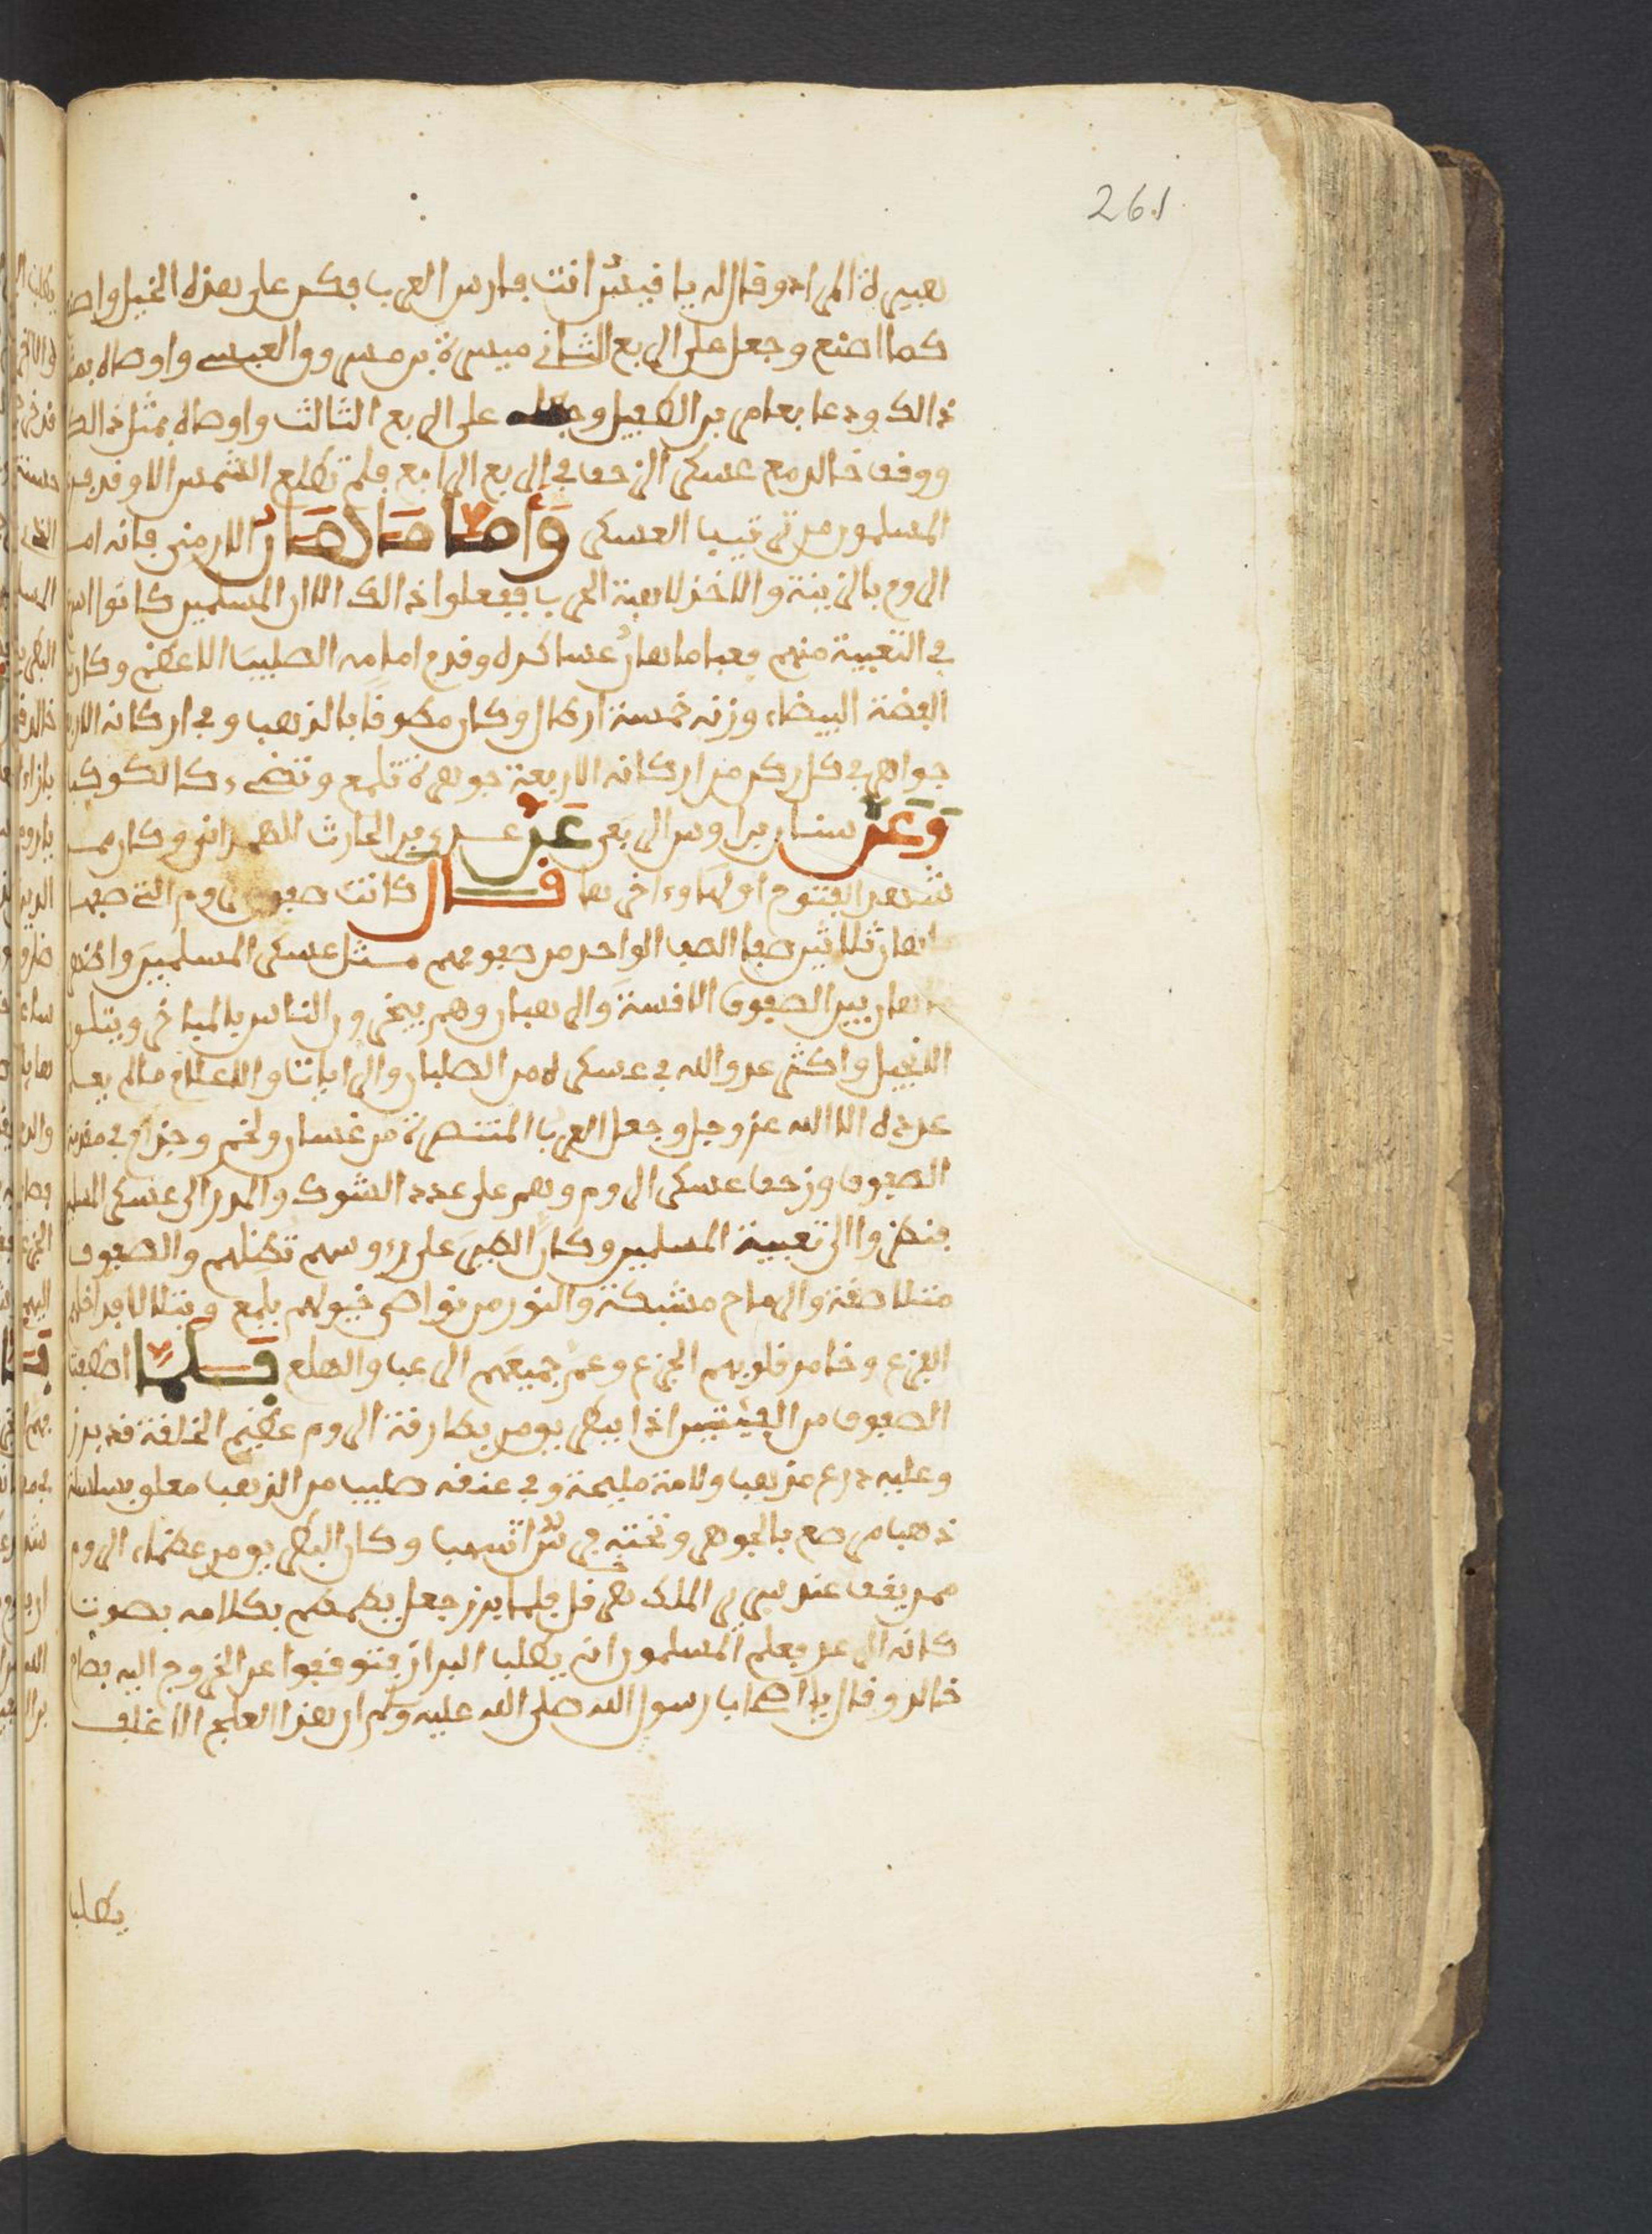 261
هبيرة المرادي وقال له يا قيس انت فارس العرب فكن على هذه الخيل واصنع
كما اصنع وجعل على الربع الثاني ميسرة بن مسروق العبسي واوصاه بمثل
ذالك ودعا بعامر بن الطفيل وجعله على الربع الثالث واوصاه بمثل ذالك
ووقف خالد مع عسكر الزحف في الربع الرابع فلم تطلع الشمس الا وقد فرغ
المسلمون من ترتيب العسكر وَأما مَاهَان الارمني فانه امر
الروم بالزينة والاخذ لاهبة الحرب ففعلوا ذالك الا ان المسلمين كانوا اسرع
في التعبية منهم فعبا ماهان عساكره وقدم امامه الصليب الاعظم وكان من
الفضة البيضاء وزنه خمسة ارطال وكان مطوقا بالذهب وفي اركانه الاربع
جواهر في كل ركن من اركانه الاربعة جوهرة تلمع وتضيء كالكوكب
وَعَن سنان بن اوس الربعي عَن عدي بن الحارث الهمداني وكان ممن
شهد الفتوح اولها واخرها قال كانت صفوف الروم التي صفها
ماهان ثلاثين صفا الصف الواحد من صفوفهم مثل عسكر المسلمين واظهر
ماهان بين الصفوف الاقسة والرهبان وهم يبخرون الناس بالمباخر ويتلون
الانجيل واكثر عدو الله في عسكره من الصلبان والرايات والاعلام مالم يعلم
عدده الا الله عز وجل وجعل العرب المتنصرة من غسان ولخم وجذام في مقدمة
الصفوف وزحف عسكر الروم وهم على عدد الشوك والمدر الى عسكر المسلمين
فنظروا الى تعبية المسلمين وكان الطير على رءوسهم تظلهم والصفوف
متلاصقة والرماح مشبكة والنور من نواصي خيولهم يلمع ويتلالا فداخلهم
الفزع وخامر قلوبهم الجزع وعم جميعهم الرعب والهلع فَلَمَّا اصطفت
الصفوف من الفئتين اذا ببطريق من بطارقة الروم عظيم الخلقة قد برز
وعليه درع مذهب ولامة مليحة وفي عنقه صليب من الذهب معلق بسلسلة
ذهبا مرصع بالجوهر وتحته فرس اشهب وكان البطريق من عظماء الروم
ممن يقف عند سرير الملك هرقل فلما برز جعل يطمطم بكلامه بصوت
كانه الرعد فعلم المسلمون انه يطلب البراز فتوقفوا عن الخروج اليه فصاح
خالد وقال يا اصحاب رسول الله صلى الله عليه وسلم ان هذا العلج الاغلف
يطلب